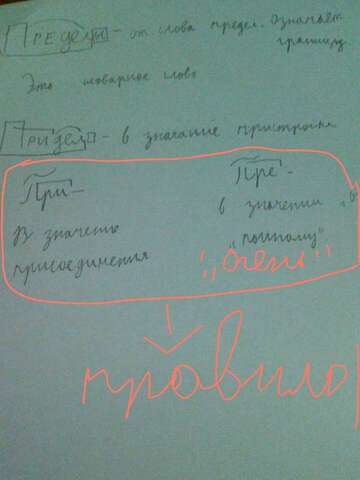 Предел - от слова предел. Означает
границу.
Это словарное слово
Придел - в значание пристройка
При -
Пре -
В значение
присоединения
в значении "в
"очень"
правило